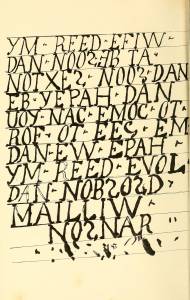 YM · REED · EFIW
DAN · NOSƎB TA
NOTXES · NOOS · DAN
EB · YEPAH · DAN
UOY · NAC · EMOC · OT ·
ROF · OT · EES · EM
DAN · EW · EPAH ·
YM · REED · EVOL
DAN · NOBSOSD
MAILLIW
NOSNAR